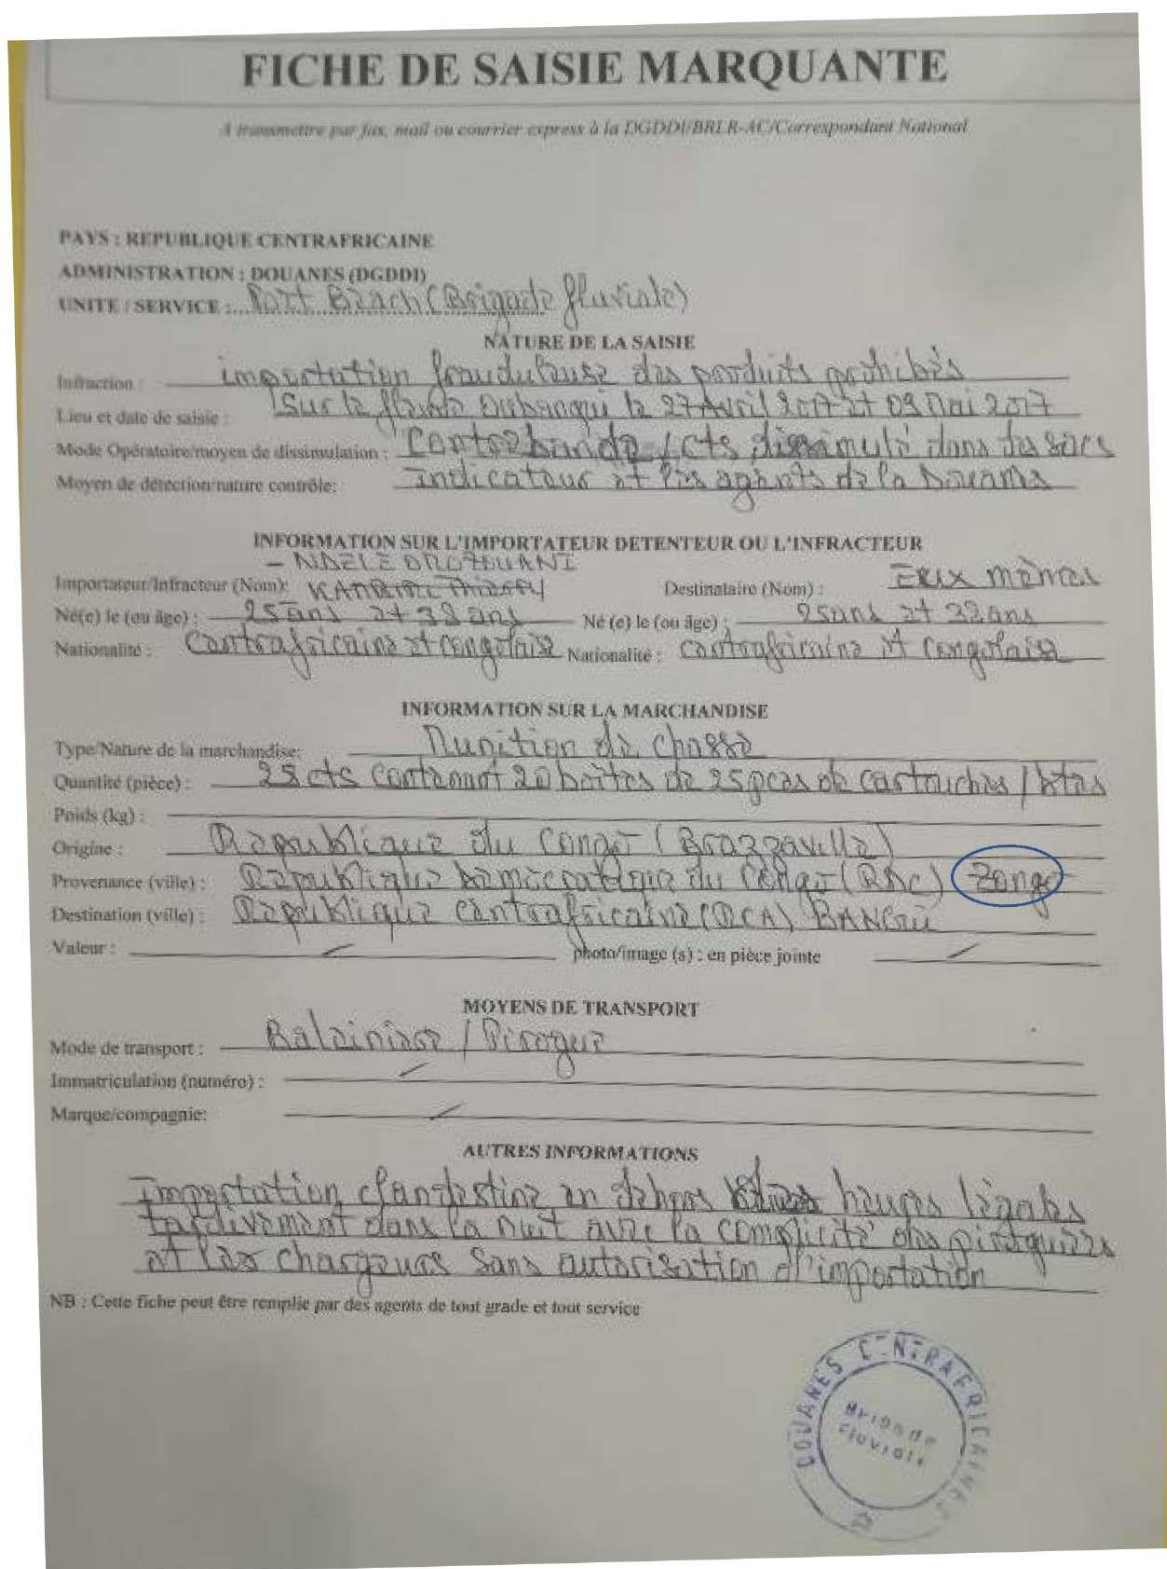 FICHE DE SAISIE MARQUANTE
A transmettre par fax, mail ou courrier express à la DGDDI/BRLR-AC/Correspondant National
PAYS : REPUBLIQUE CENTRAFRICAINE
ADMINISTRATION : DOUANES (DGDDI)
UNITE / SERVICE : Port Beach (Brigade fluviale)
NATURE DE LA SAISIE
Infraction : importation frauduleuse des produits prohibés
Lieu et date de saisie : Sur le fleuve Oubangui le 27 Avril 2017 et 09 Mai 2017
Mode Opératoire/moyen de dissimulation : Contrebande / cts dissimulé dans des sacs
Moyen de détection/nature contrôle: indicateur et les agents de la Douane
INFORMATION SUR L'IMPORTATEUR DETENTEUR OU L'INFRACTEUR
- NDELE
Importateur/Infracteur (Nom): Destinataire (Nom) :
Né(e) le (ou âge) : 25 ans et 32 ans Né (e) le (ou âge) : 25 ans et 32 ans
Nationalité : Centrafricaine et congolaise Nationalité : Centrafricaine et Congolaise
INFORMATION SUR LA MARCHANDISE
Type/Nature de la marchandise: Munition de chasse
Quantité (pièce) : 28 cts contenant 20 boîtes de 25 pces de cartouches / btes
Poids (kg) :
Origine : République du Congo (Brazzaville)
Provenance (ville) : République Démocratique du Congo (RDC) Zongo
Destination (ville) : République Centrafricaine (RCA) BANGUI
Valeur : photo/image (s) : en pièce jointe
MOYENS DE TRANSPORT
Mode de transport : Baleinière / Pirogue
Immatriculation (numéro) :
Marque/compagnie:
AUTRES INFORMATIONS
Importation clandestine en dehors heures légales
tardivement dans la nuit avec la complicité des piroguiers
et les chargeurs sans autorisation d'importation
NB : Cette fiche peut être remplie par des agents de tout grade et tout service
DOUANES CENTRAFRICAINES
Brigade
Fluviale